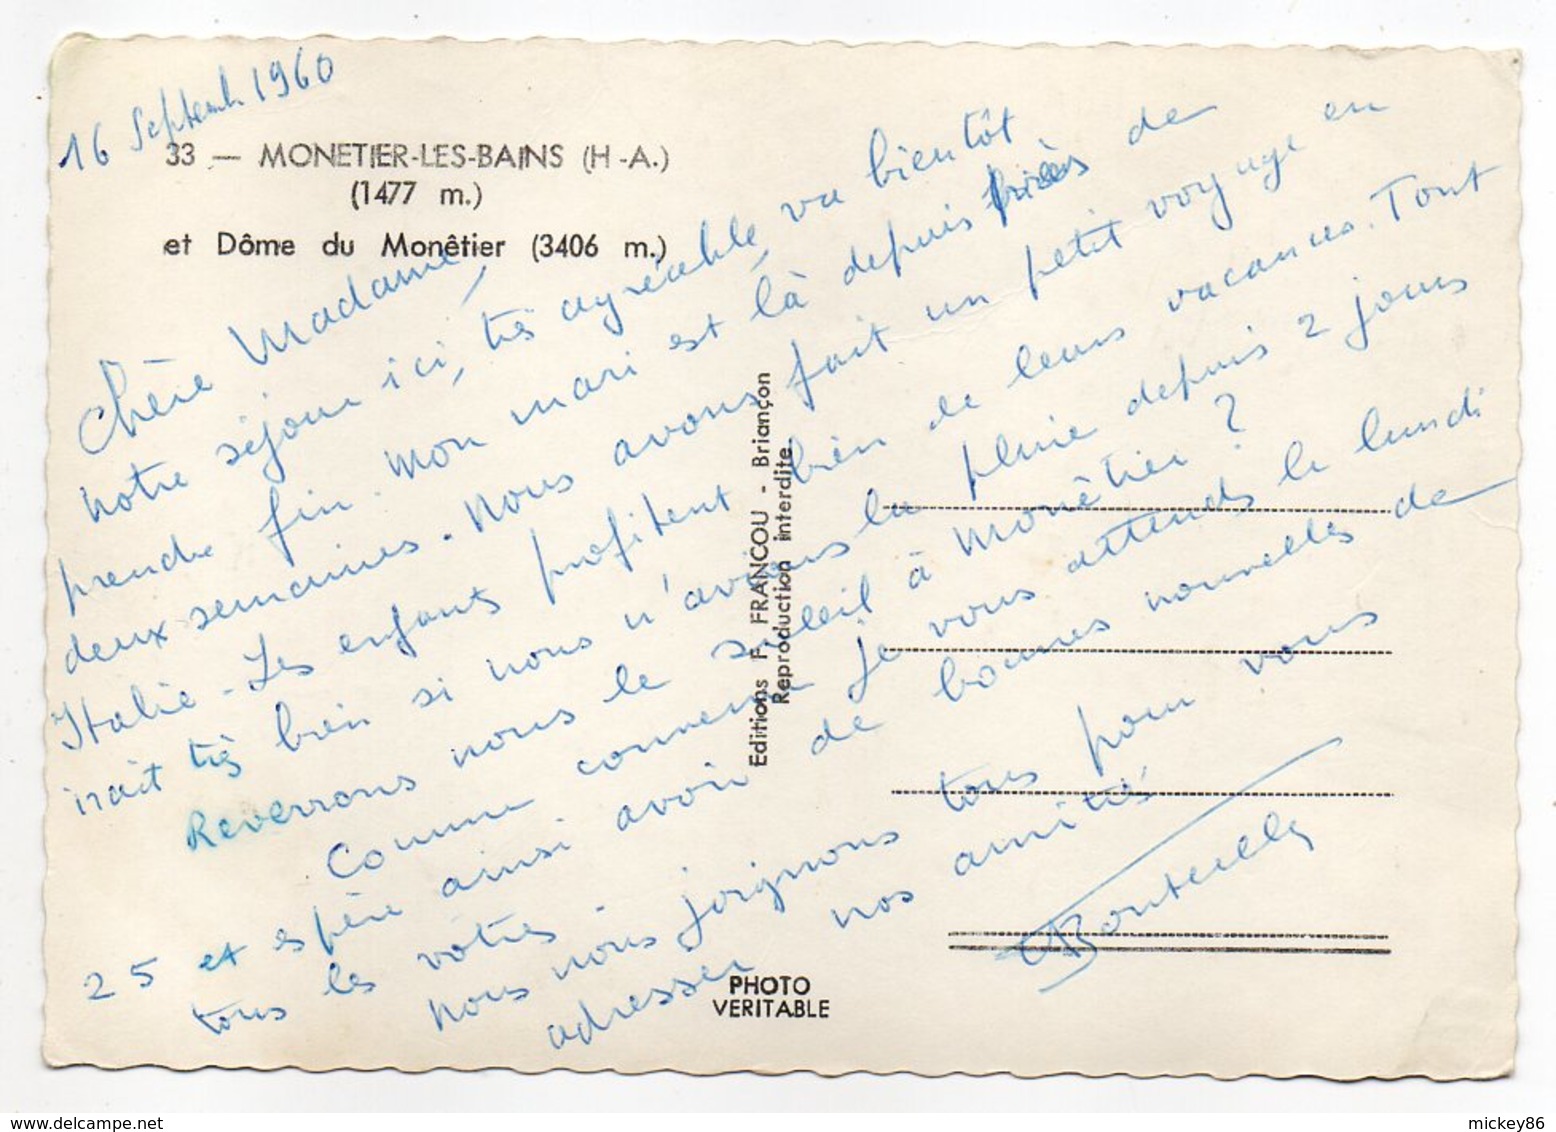 16 Septemb. 1960
33 — MONETIER-LES-BAINS (H-A.)
(1477 m.)
et Dôme du Monêtier (3406 m.)
Chère Madame,
notre séjour ici, très agréable, va bientôt
prendre fin. Mon mari est là depuis près de
deux semaines. Nous avons fait un petit voyage en
Italie - Les enfants profitent bien de leurs vacances. Tout
irait très bien si nous n'avions la pluie depuis 2 jours
Reverrons nous le soleil à Monêtier ?
Comme convenu je vous attends le lundi
25 et espère ainsi avoir de bonnes nouvelles de
tous les vôtres.
Nous nous joignons tous pour vous
adresser nos amitiés
Bouteille
Editions F. FRANCOU - Briançon
Reproduction interdite
PHOTO
VERITABLE
mickey86